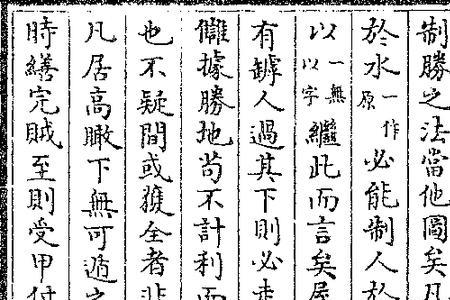 制勝之法當他圖矣凡
於水一作原必能制人於
以一無以字繼此而言矣居
有罅人過其下則必走
讎據勝地苟不計利而
也不疑間或獲全者非
凡居高瞰下無可遁之
時繕完賊至則受甲付